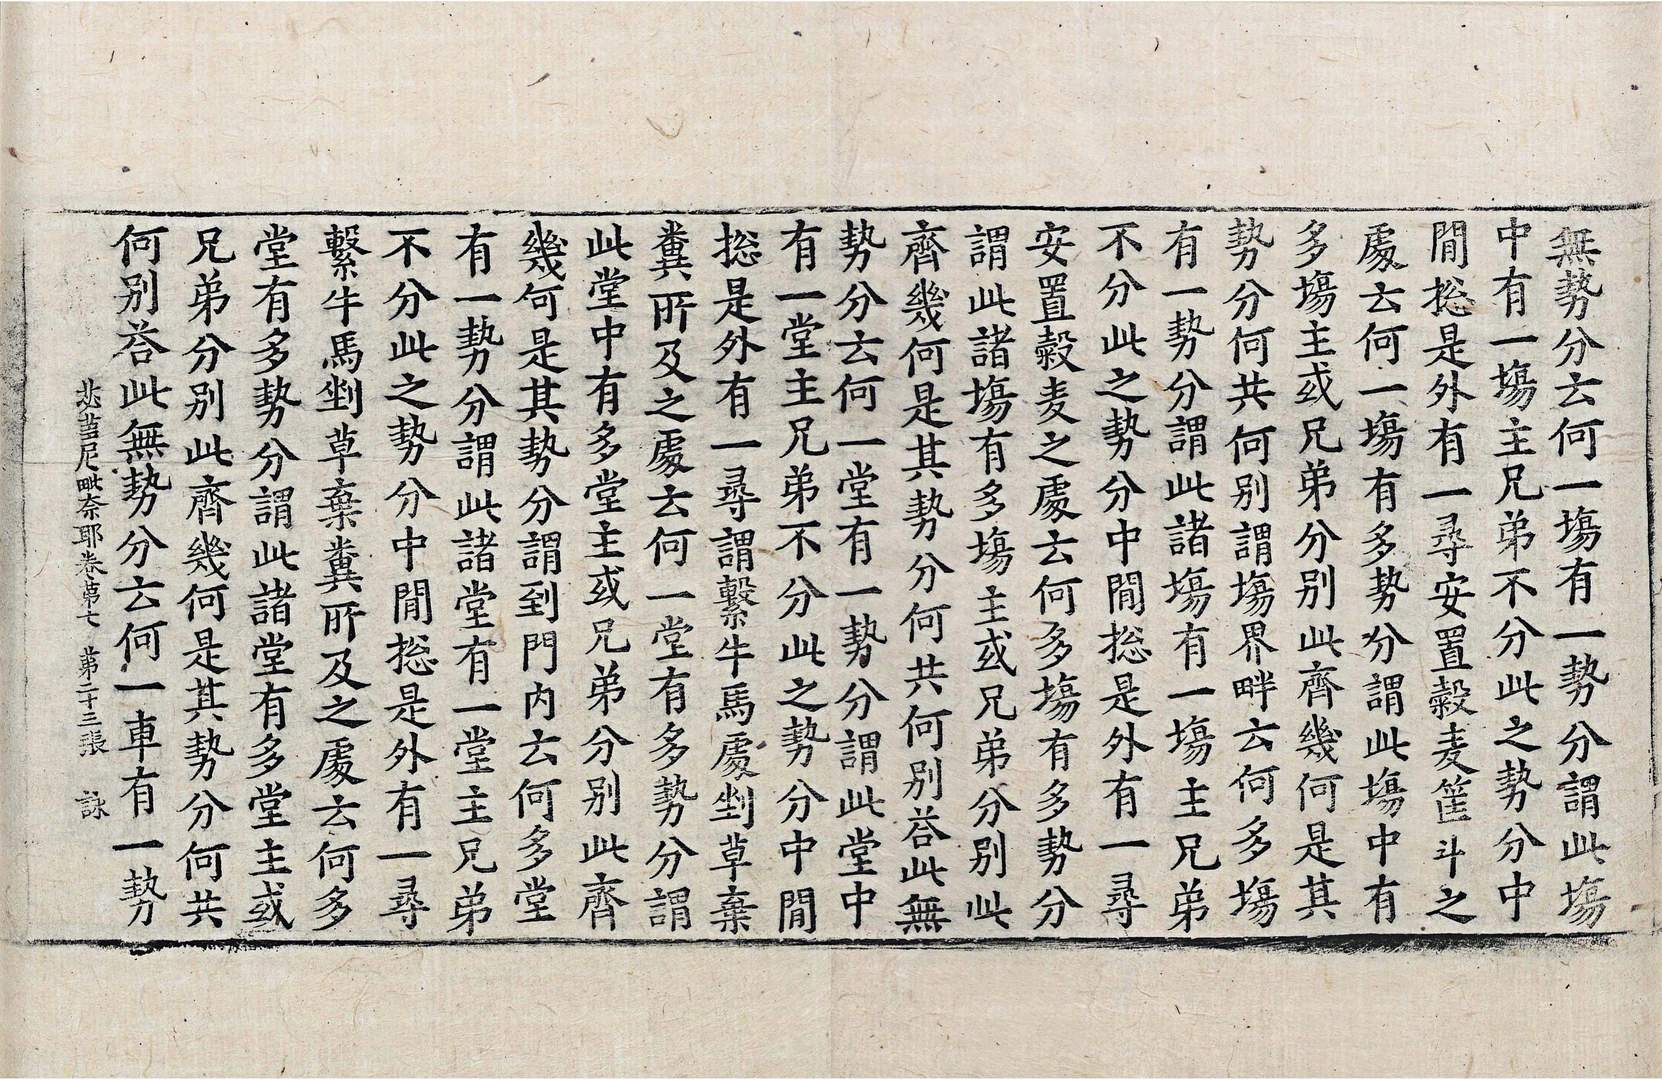 無勢分去何一塲有一勢分謂此塲
中有一塲主兄弟不分此之勢分中
閒捴是外有一尋安置穀麦篅斗之
處去何一塲有多勢分謂此塲中有
多塲主或兄弟分别此齊幾何是其
勢分何共何别謂塲界畔去何多塲
有一勢分謂此諸塲有一塲主兄弟
不分此之勢分中閒捴是外有一尋
安置穀麦之處去何多塲有多勢分
謂此諸塲有多塲主或兄弟分别此
齊幾何是其勢分何共何别荅此無
勢分去何一堂有一勢分謂此堂中
有一堂主兄弟不分此之勢分中閒
捴是外有一尋謂繫牛馬處剉草棄
糞所及之處去何一堂有多勢分謂
此堂中有多堂主或兄弟分别此齊
幾何是其勢分謂到門内去何多堂
有一勢分謂此諸堂有一堂主兄弟
不分此之勢分中閒捴是外有一尋
繫牛馬剉草棄糞所及之處去何多
堂有多勢分謂此諸堂有多堂主或
兄弟分别此齊幾何是其勢分何共
何别荅此無勢分去何一車有一勢
苾蒭尼毗奈耶卷第七 第二十三張 詠